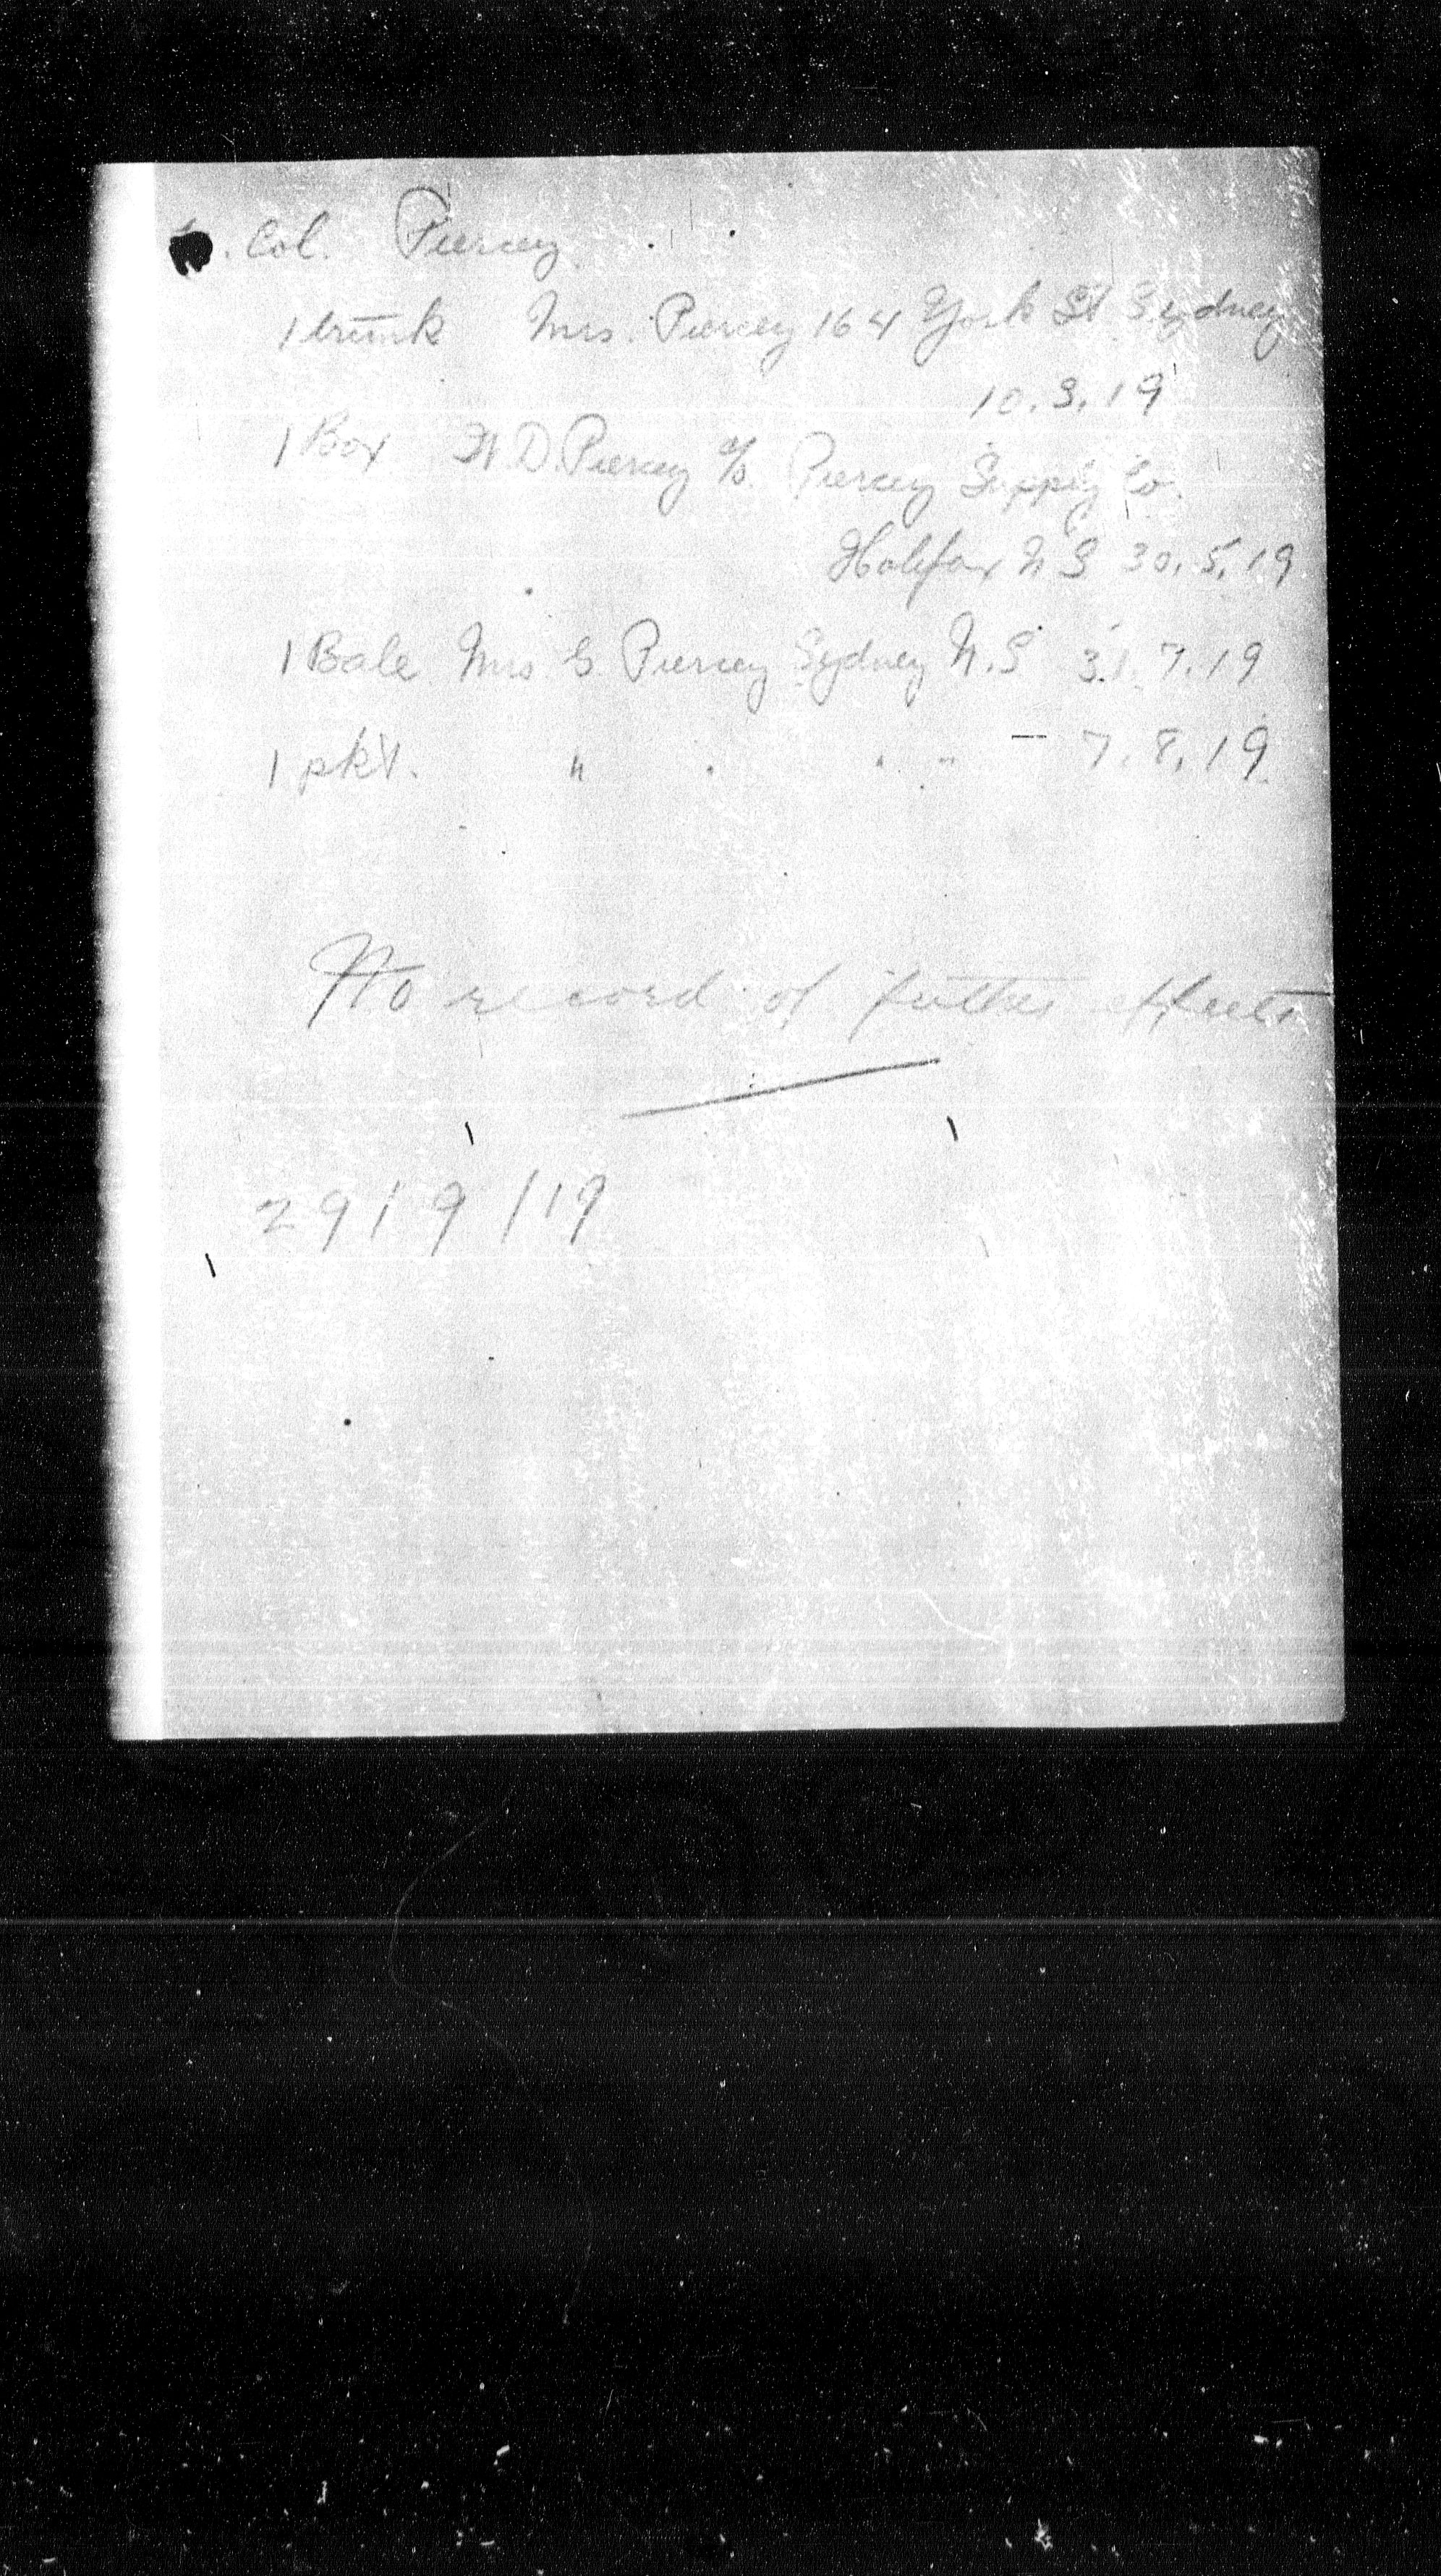 . Col. Piercey
1 trunk Mrs. Piercey 164 York St Sydney
10.3.19
1 Box W.D. Piercey c/o. Piercey Supply Co.
Halifax N S 30.5.19
1 Bale Mrs G. Piercey Sydney N.S 31.7.19
1 pkt. " " " " — 7.8.19
No record of further effects
29/9/19